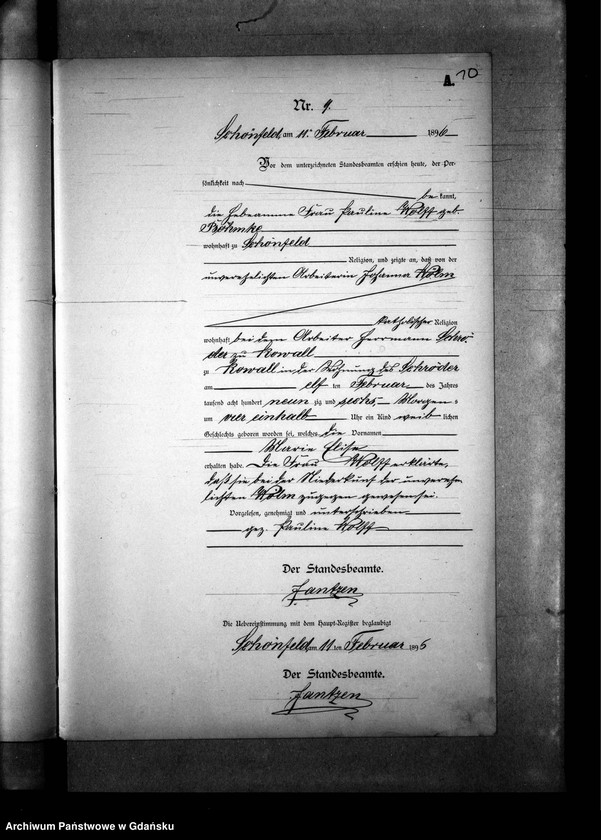 A. 10
Nr. 9.
Schönfeld, am 11ten Februar 1896
Vor dem unterzeichneten Standesbeamten erschien heute, der Per-
sönlichkeit nach
be kannt,
die Hebeamme Frau Pauline Wolff geb.
wohnhaft zu Schönfeld
Religion, und zeigte an, daß von der
unverehelichten Arbeiterin Johanna Wolm
katholischer Religion
wohnhaft bei dem Arbeiter Herrmann Schrö-
der zu Kowall
zu Kowall in der Wohnung des Schröder
am elf ten Februar des Jahres
tausend acht hundert neun zig und sechs, Morgens
um vier einhalb Uhr ein Kind weib lichen
Geschlechts geboren worden sei, welches die Vornamen
Marie Elise
erhalten habe. Die Frau Wolff erklärte,
daß sie bei der Niederkunft der unvereh-
lichten Wolm zugegen gewesen sei.
Vorgelesen, genehmigt und unterschrieben
gez. Pauline Wolff
Der Standesbeamte.
Jantzen
Die Uebereinstimmung mit dem Haupt-Register beglaubigt
Schönfeld, am 11 ten Februar 1896
Der Standesbeamte.
Jantzen
Archiwum Państwowe w Gdańsku